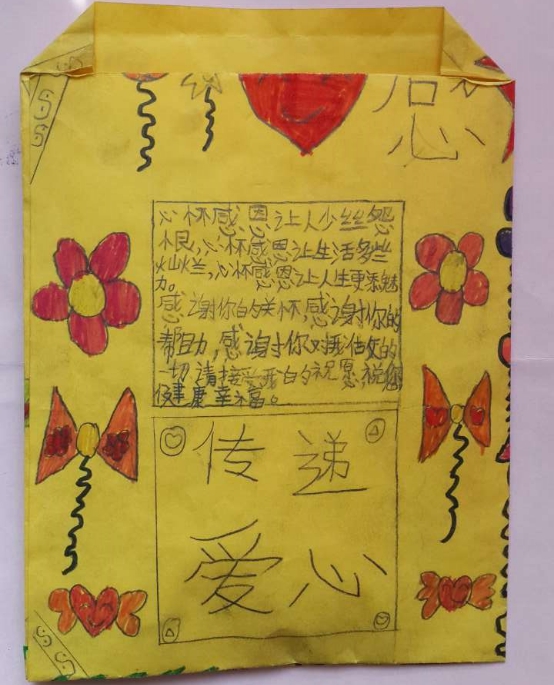 心怀感恩让人少丝怨
恨,心怀感恩让生活多些
灿烂,心怀感恩让人生更添魅
力。
感谢你的关怀,感谢你的
帮助,感谢你对我做的
一切,请接受我的祝愿,祝您
健康幸福。
传递
爱心